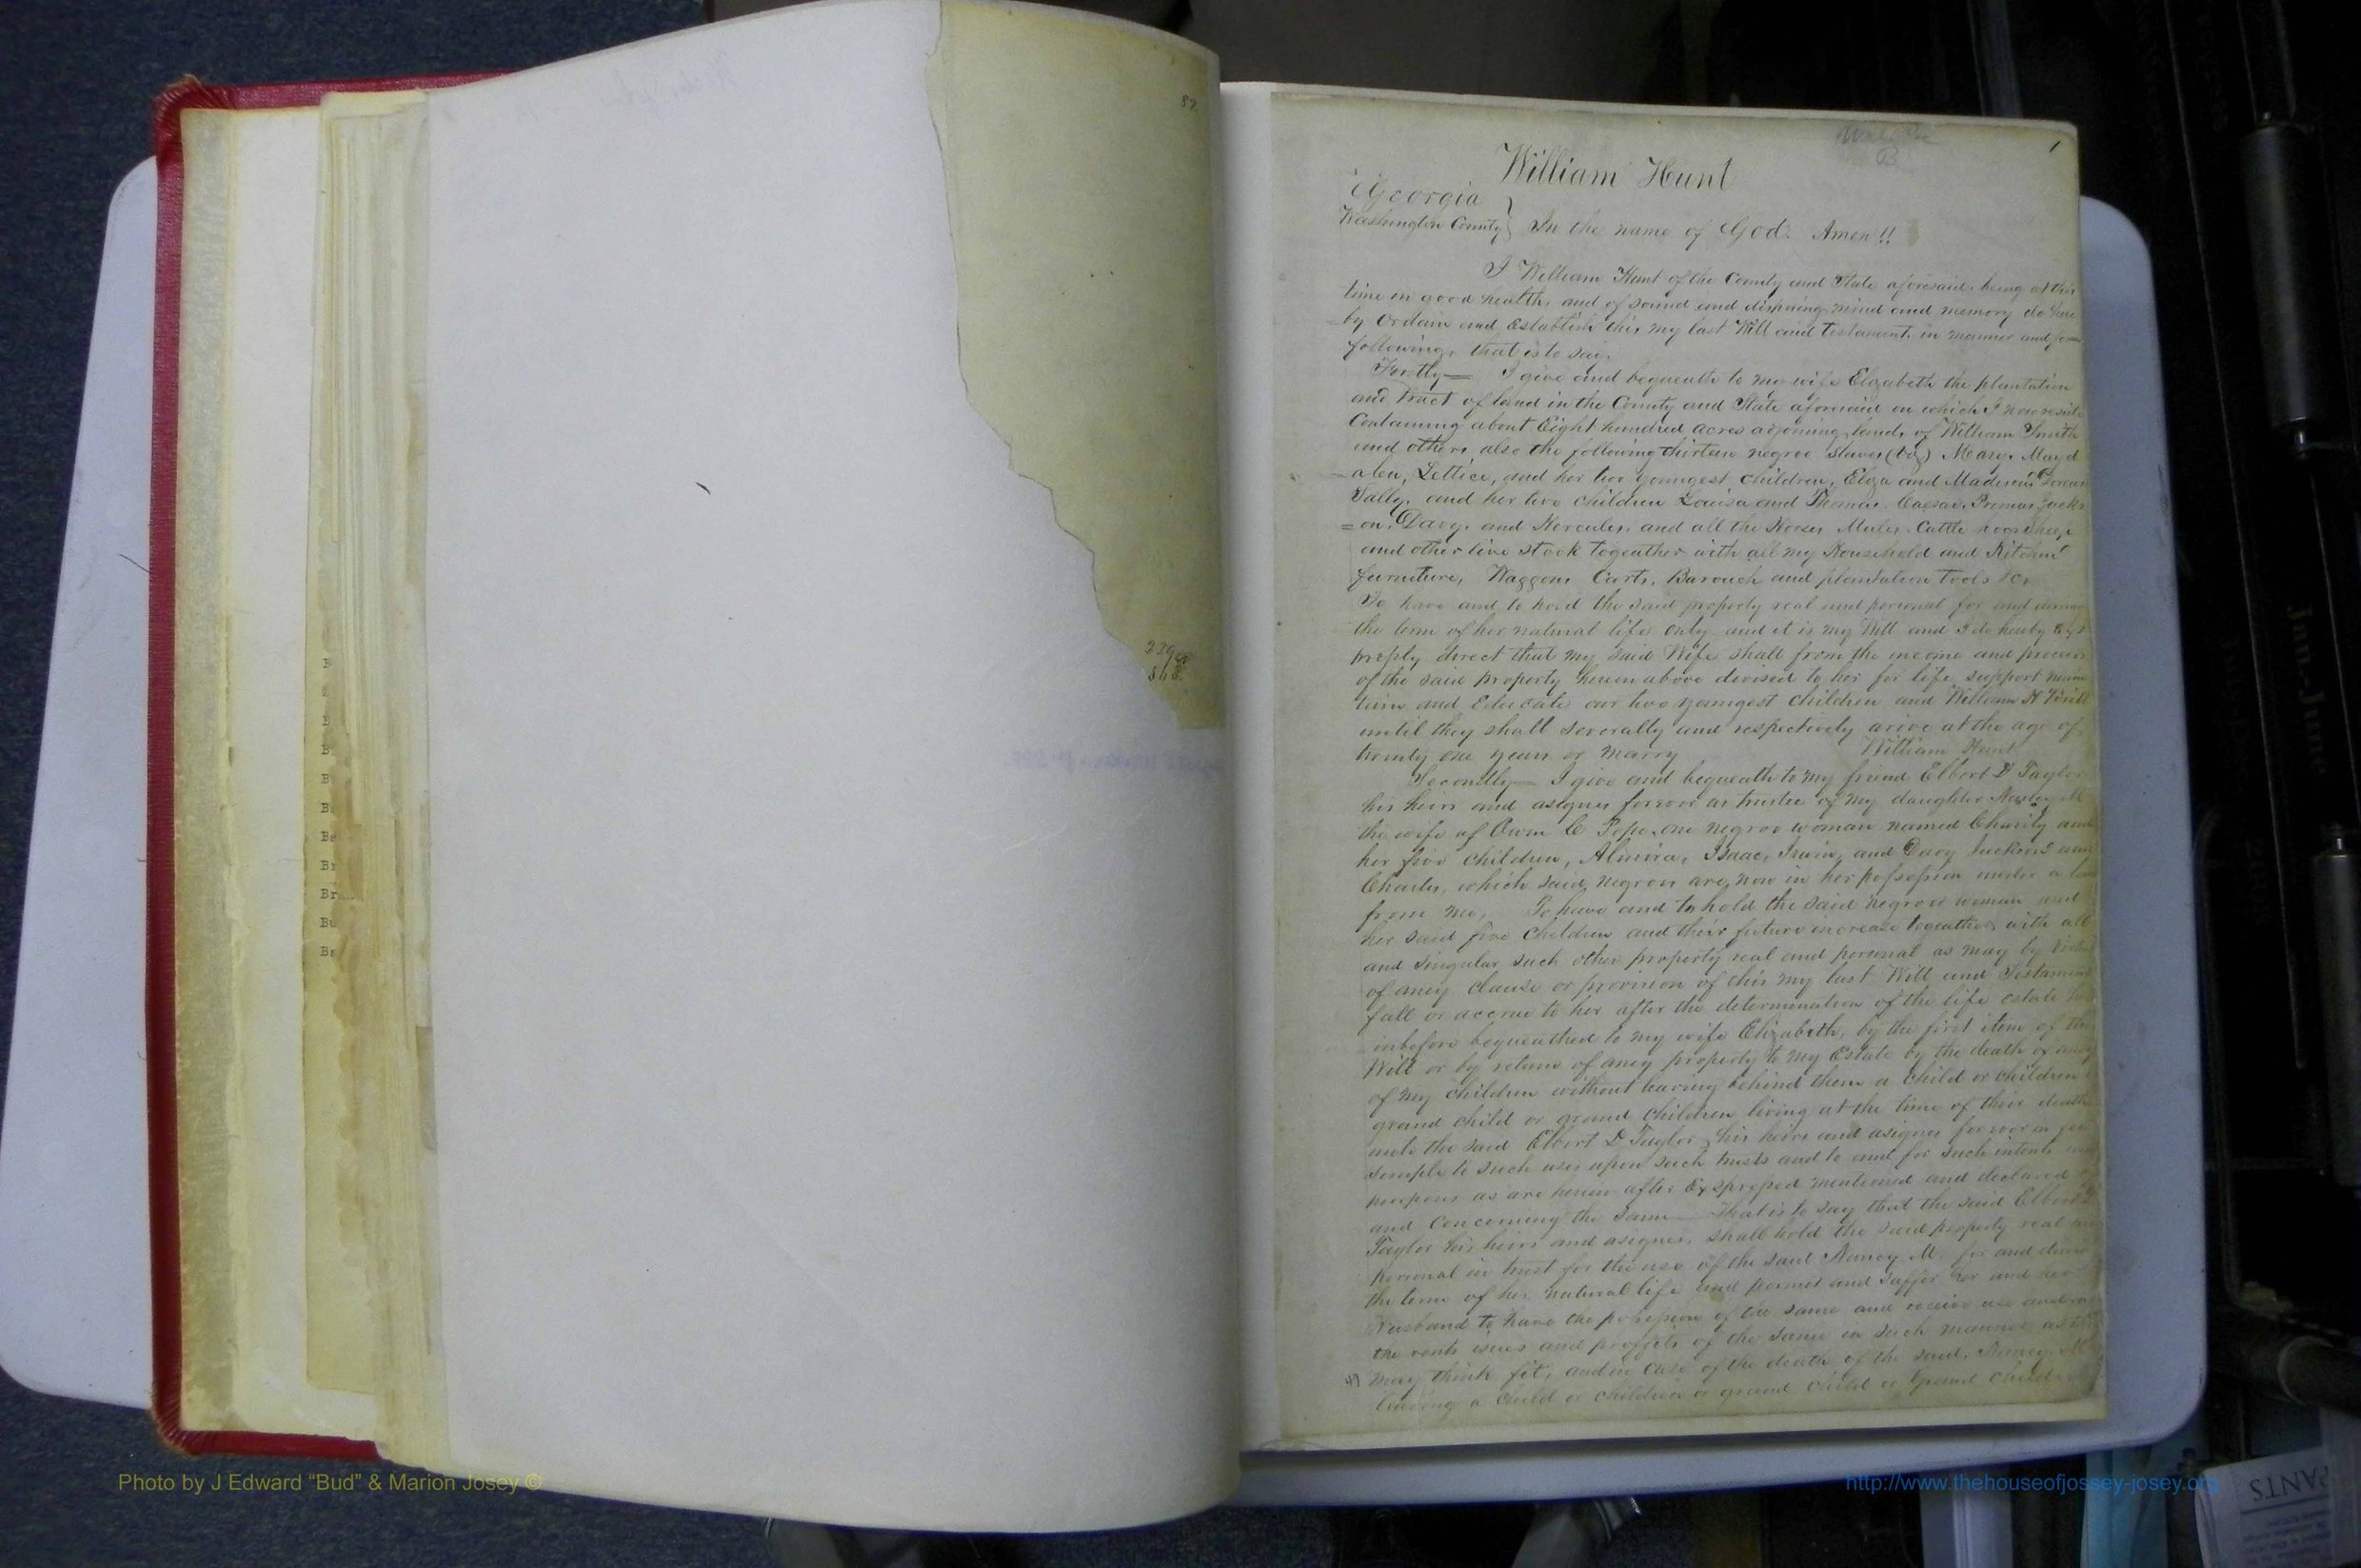 82
B
Be
Br
Bra
Bu
William Hunt
1
B
Georgia
Washington County } In the name of God. Amen!!
I William Hunt of the County and State aforesaid being at this
time in good health, and of sound and disposing mind and memory do here
by Ordain and Establish this my last Will and testament, in manner and form
following, that is to say.
Firstly — I give and bequeath to my wife Elizabeth the plantation
and tract of land in the County and State aforesaid on which I now reside
Containing about Eight hundred acres adjoining lands of William Smith
and others, also the following thirteen negroe slaves (viz) Mary, Mayd
=alen, Lettice, and her two youngest children, Eliza and Madison
Sally, and her two children Louisa and Thomas, Caesar, Primus Jacks
=on, Davy, and Hercules, and all the Horses Mules, Cattle
and other live stock togeather with all my Household and Kitchen
furniture, Waggons Carts, Barouch and plantation tools &c,
To have and to hold the said property real and personal for and during
the term of her natural life only and it is my Will and I do hereby Exs
pressly direct that my said Wife shall from the income and proceeds
of the said property hereinabove devised to her for life, support main
tain and Educate our two youngest children and William H
until they shall severally and respectively arive at the age of
twenty one years or marry William Hunt
Secondly — I give and bequeath to my friend Elbert D Taylor
his heirs and asignes forever as trustee of my daughter Nancy M
the wife of Owen C Pope, one negroe woman named Charity and
her five children, Almira, Isaac, Irwin, and Davy Jackson and
Charles, which said negroes are now in her possession under a
from me, To have and to hold the said negroe woman and
her said five children and their future increase togeather with all
and singular such other property real and personal as may by
of aney clause or provision of this my last Will and Testament
fall or accrue to her after the determination of the life estate her
inbefore bequeathed to my wife Elizabeth, by the first item of this
Will or by return of aney property to my Estate by the death of aney
of my children without leaving behind them a child or children
grand child or grand children living at the time of their death
unto the said Elbert D Taylor his heirs and asignes forever in fee
simple to such uses upon such trusts and to and for such intents and
purposes as are herein after Exspressed mentioned and declared of
and concerning the same — That is to say that the said Elbert D
Taylor his heirs and asignes, shall hold the said property real and
personal in trust for the use of the said Nancy M. for and during
the term of her natural life and permit and suffer her and her
Husband to have the possession of the same and receive use and
the rents issues and proffits of the same in such manner as
may think fit, and in case of the death of the said, Nancy M
leaving a child or children or grand child or Grand children
Photo by J Edward “Bud” & Marion Josey ©
http://www.thehouseofjossey-josey.org